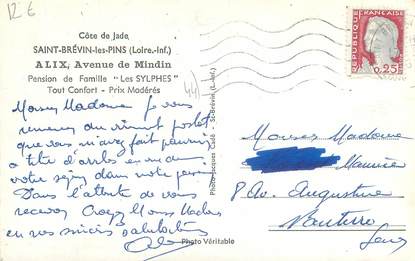 12 €
Côte de Jade
SAINT-BRÉVIN-les-PINS (Loire-Inf.)
ALIX, Avenue de Mindin
Pension de Famille "Les SYLPHES"
Tout Confort - Prix Modérés
44
REPUBLIQUE FRANÇAISE
0,25
Photo Jacques Calé - St-Brévin (L.-Inf.)
Madame je vous
remercie du
que vous m'avez fait parvenir
à titre d'arrhes en
votre séjour dans notre
Dans l'attente de vous
recevoir Croyez
en nos sincères salutations
Madame
8 Av. Augustine
Nanterre
Seine
Photo Véritable